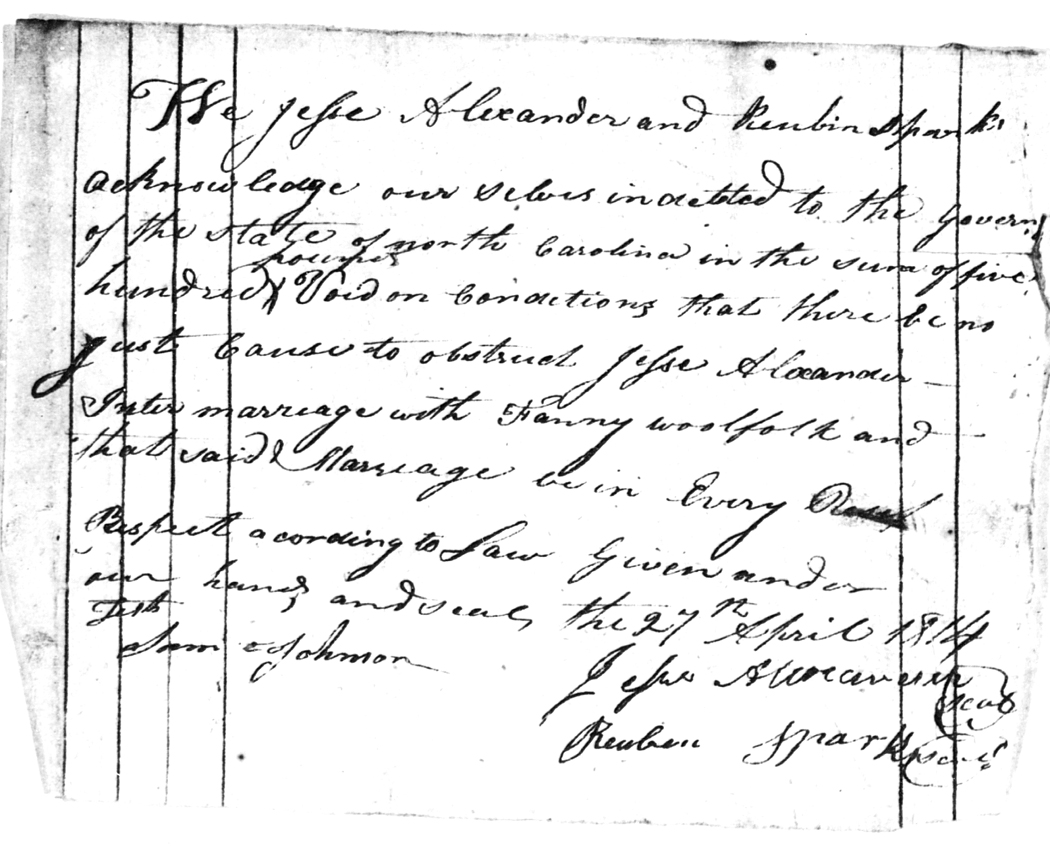 We Jesse Alexander and Reubin Sparks
acknowledge our selves indebted to the Govern
of the state of north Carolina in the sum of five
pounds
hundred Void on Conditions that there be no
Just Cause to obstruct Jesse Alexander
Inter marriage with Fanny woolfolk and
that said Marreage be in Every
Respect acording to Law Given under
our hands and seals the 27th April 1814
Test
Jesse Alexander seal
Reuben Sparks seal
Sam Johnson